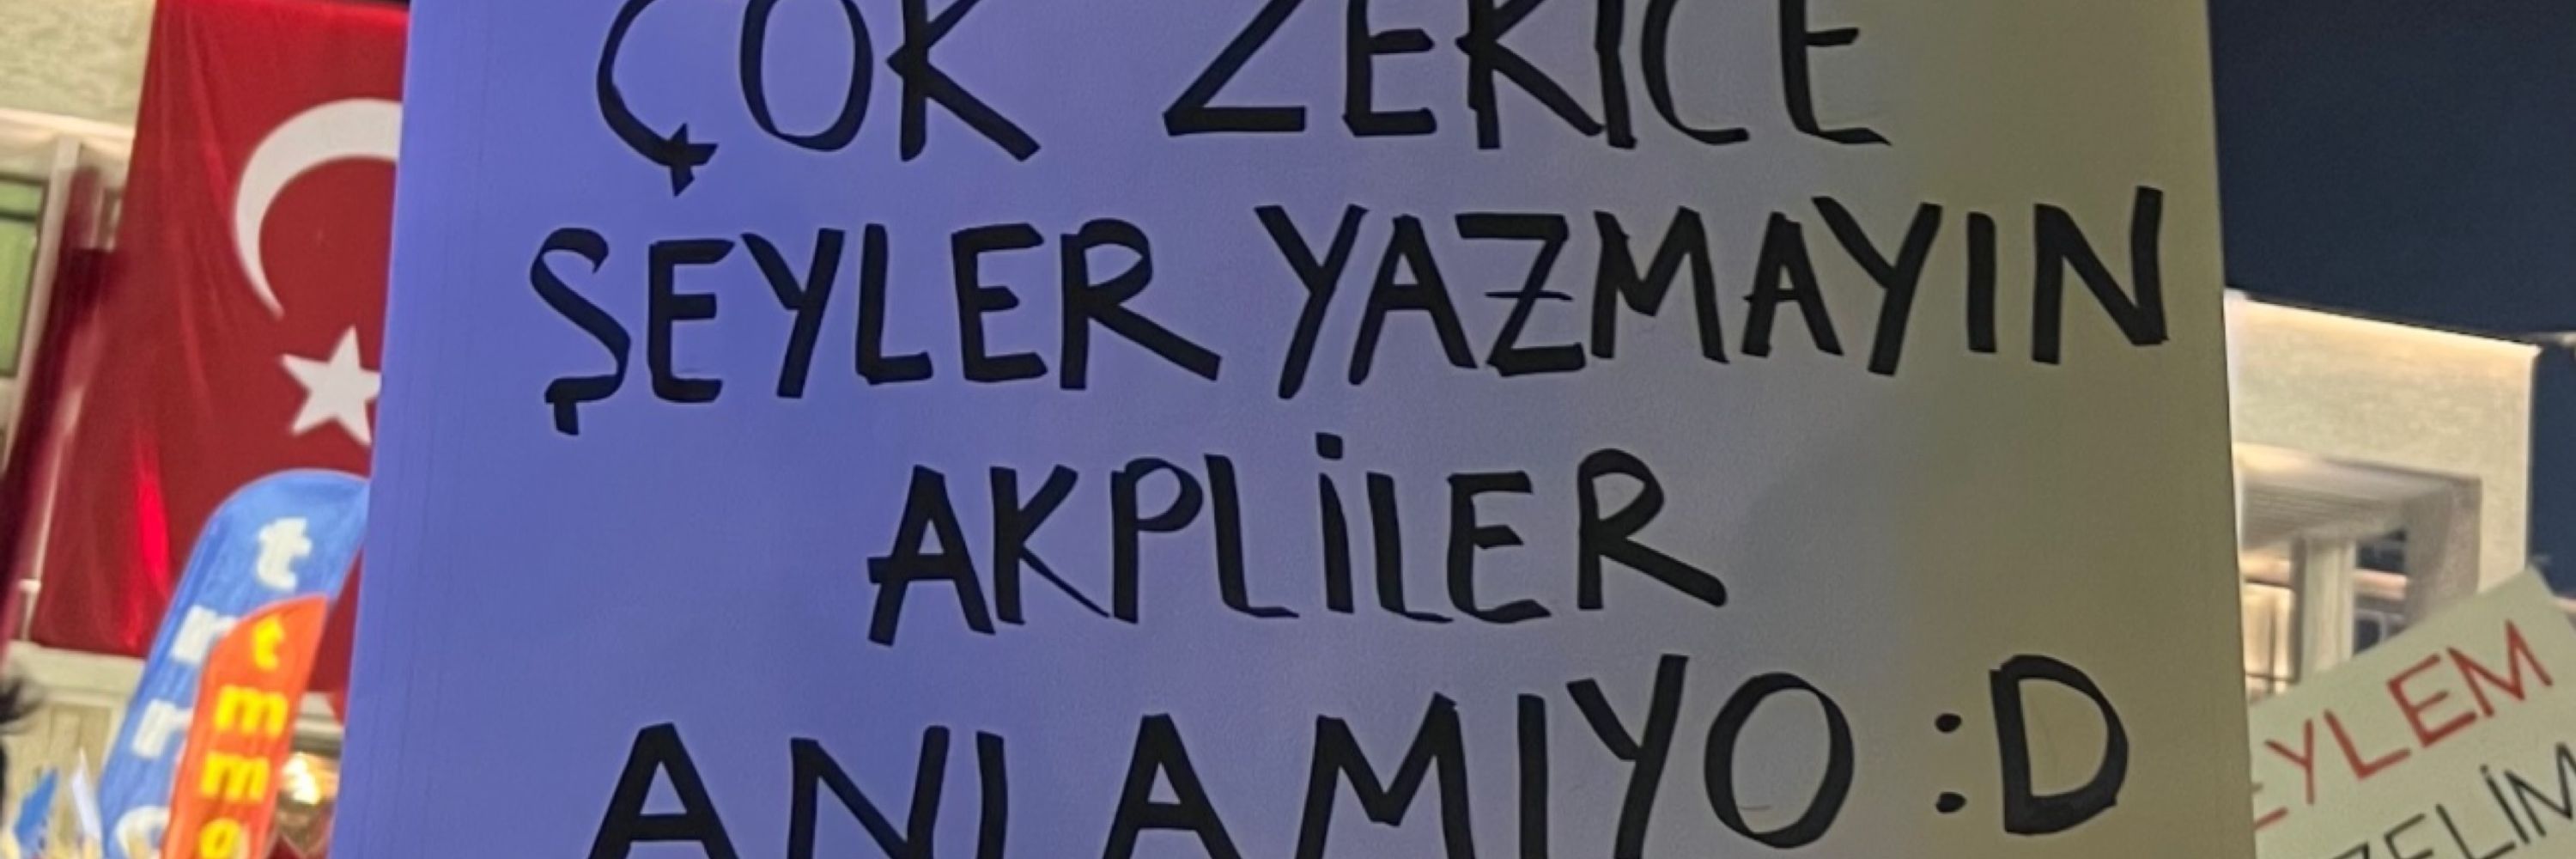 ÇOK ZEKICE
ŞEYLER YAZMAYIN
AKPLİLER
ANLAMIYO :D
t
m
m
t
m
m
o
EYLEM
ZELİM